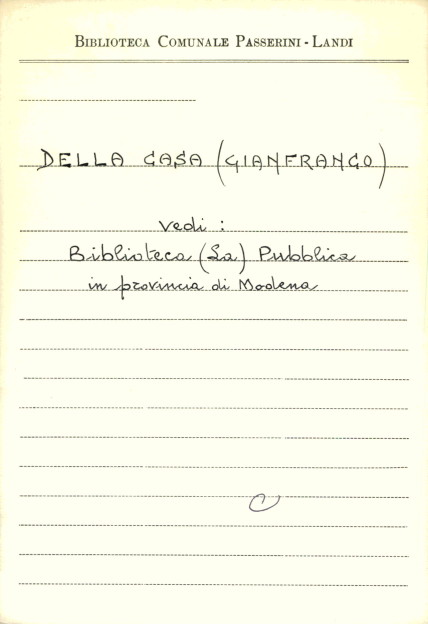 BIBLIOTECA COMUNALE PASSERINI - LANDI
DELLA CASA (GIANFRANCO)
vedi :
Biblioteca (La) Pubblica
in provincia di Modena
C